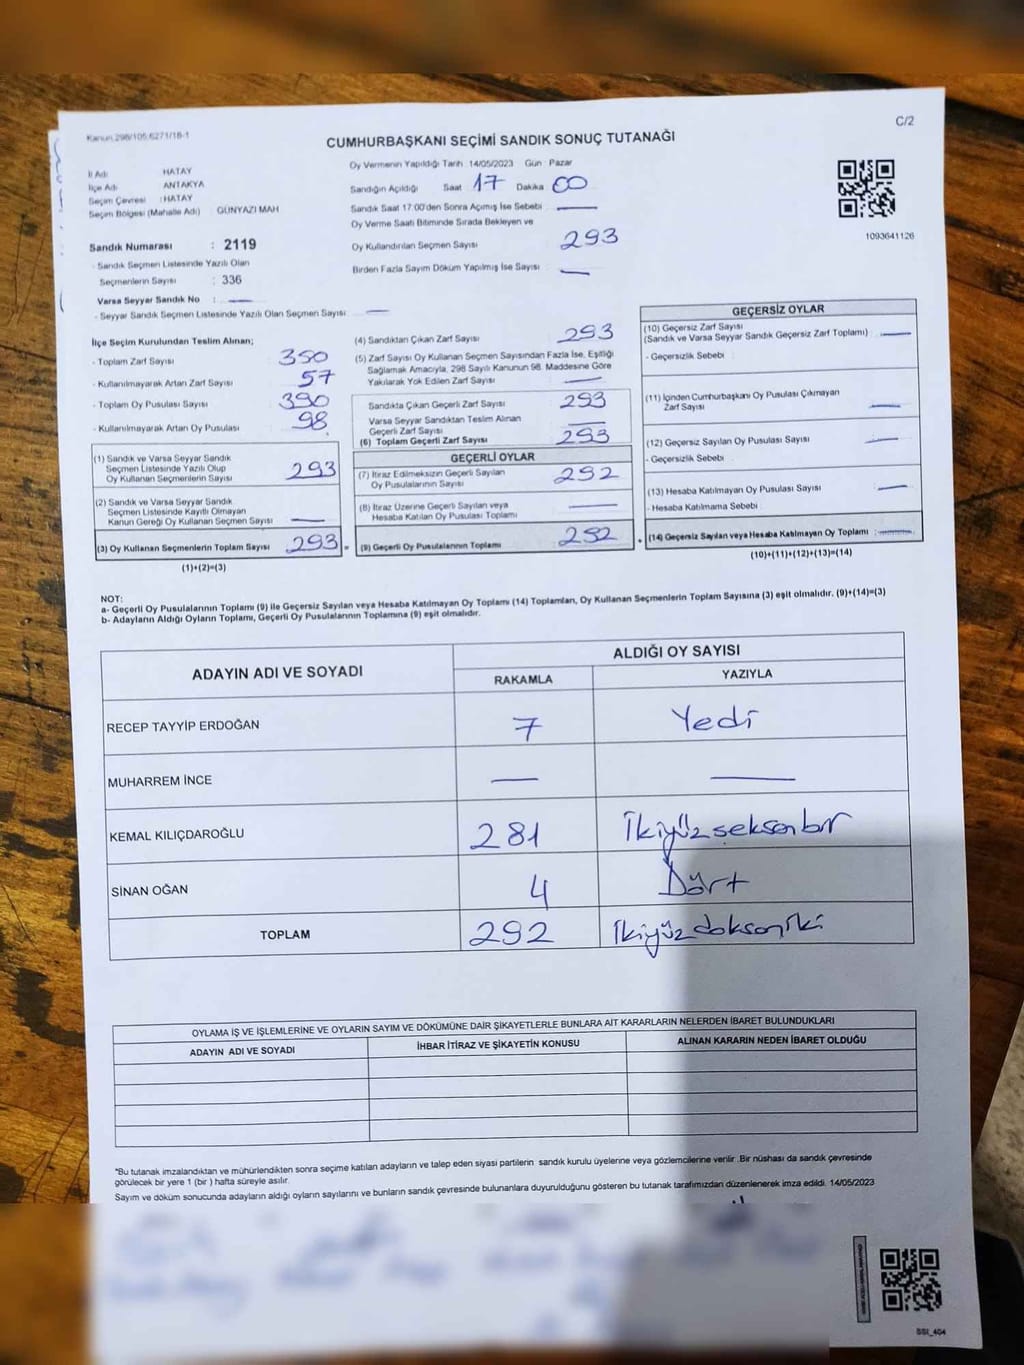 Kanun 298/105,6271/18-1
C/2
CUMHURBAŞKANI SEÇİMİ SANDIK SONUÇ TUTANAĞI
İl Adı : HATAY
İlçe Adı : ANTAKYA
Seçim Çevresi : HATAY
Seçim Bölgesi (Mahalle Adı) : GÜNYAZI MAH
Sandık Numarası : 2119
- Sandık Seçmen Listesinde Yazılı Olan
Seçmenlerin Sayısı : 336
Varsa Seyyar Sandık No : —
- Seyyar Sandık Seçmen Listesinde Yazılı Olan Seçmen Sayısı : —
Oy Vermenin Yapıldığı Tarih 14/05/2023 Gün : Pazar
Sandığın Açıldığı Saat 17 Dakika 00
Sandık Saat 17:00'den Sonra Açımış İse Sebebi —
Oy Verme Saati Bitiminde Sırada Bekleyen ve
Oy Kullandırılan Seçmen Sayısı 293
Birden Fazla Sayım Döküm Yapılmış İse Sayısı : —
1093641126
İlçe Seçim Kurulundan Teslim Alınan;
- Toplam Zarf Sayısı 350
- Kullanılmayarak Artan Zarf Sayısı 57
- Toplam Oy Pusulası Sayısı 390
- Kullanılmayarak Artan Oy Pusulası 98
(1) Sandık ve Varsa Seyyar Sandık
Seçmen Listesinde Yazılı Olup
Oy Kullanan Seçmenlerin Sayısı 293
(2) Sandık ve Varsa Seyyar Sandık
Seçmen Listesinde Kayıtlı Olmayan
Kanun Gereği Oy Kullanan Seçmen Sayısı —
(3) Oy Kullanan Seçmenlerin Toplam Sayısı 293 =
(1)+(2)=(3)
(4) Sandıktan Çıkan Zarf Sayısı 293
(5) Zarf Sayısı Oy Kullanan Seçmen Sayısından Fazla İse, Eşitliği
Sağlamak Amacıyla, 298 Sayılı Kanunun 98. Maddesine Göre
Yakılarak Yok Edilen Zarf Sayısı —
Sandıkta Çıkan Geçerli Zarf Sayısı 293
Varsa Seyyar Sandıktan Teslim Alınan
Geçerli Zarf Sayısı —
(6) Toplam Geçerli Zarf Sayısı 293
GEÇERLİ OYLAR
(7) İtiraz Edilmeksizin Geçerli Sayılan
Oy Pusulalarının Sayısı 292
(8) İtiraz Üzerine Geçerli Sayılan veya
Hesaba Katılan Oy Pusulası Toplamı —
(9) Geçerli Oy Pusulalarının Toplamı 292 +
GEÇERSİZ OYLAR
(10) Geçersiz Zarf Sayısı
(Sandık ve Varsa Seyyar Sandık Geçersiz Zarf Toplamı) —
- Geçersizlik Sebebi :
(11) İçinden Cumhurbaşkanı Oy Pusulası Çıkmayan
Zarf Sayısı —
(12) Geçersiz Sayılan Oy Pusulası Sayısı —
- Geçersizlik Sebebi
(13) Hesaba Katılmayan Oy Pusulası Sayısı —
- Hesaba Katılmama Sebebi
(14) Geçersiz Sayılan veya Hesaba Katılmayan Oy Toplamı : —
(10)+(11)+(12)+(13)=(14)
NOT:
a- Geçerli Oy Pusulalarının Toplamı (9) ile Geçersiz Sayılan veya Hesaba Katılmayan Oy Toplamı (14) Toplamları, Oy Kullanan Seçmenlerin Toplam Sayısına (3) eşit olmalıdır. (9)+(14)=(3)
b- Adayların Aldığı Oyların Toplamı, Geçerli Oy Pusulalarının Toplamına (9) eşit olmalıdır.
ADAYIN ADI VE SOYADI
ALDIĞI OY SAYISI
RAKAMLA YAZIYLA
RECEP TAYYİP ERDOĞAN 7 Yedi
MUHARREM İNCE — —
KEMAL KILIÇDAROĞLU 281 İkiyüzseksenbir
SİNAN OĞAN 4 Dört
TOPLAM 292 İkiyüzdoksaniki
OYLAMA İŞ VE İŞLEMLERİNE VE OYLARIN SAYIM VE DÖKÜMÜNE DAİR ŞİKAYETLERLE BUNLARA AİT KARARLARIN NELERDEN İBARET BULUNDUKLARI
ADAYIN ADI VE SOYADI İHBAR İTİRAZ VE ŞİKAYETİN KONUSU ALINAN KARARIN NEDEN İBARET OLDUĞU
"Bu tutanak imzalandıktan ve mühürlendikten sonra seçime katılan adayların ve talep eden siyasi partilerin sandık kurulu üyelerine veya gözlemcilerine verilir .Bir nüshası da sandık çevresinde
görülecek bir yere 1 (bir ) hafta süreyle asılır.
Sayım ve döküm sonucunda adayların aldığı oyların sayılarını ve bunların sandık çevresinde bulunanlara duyurulduğunu gösteren bu tutanak tarafımızdan düzenlenerek imza edildi. 14/05/2023
SSI_404